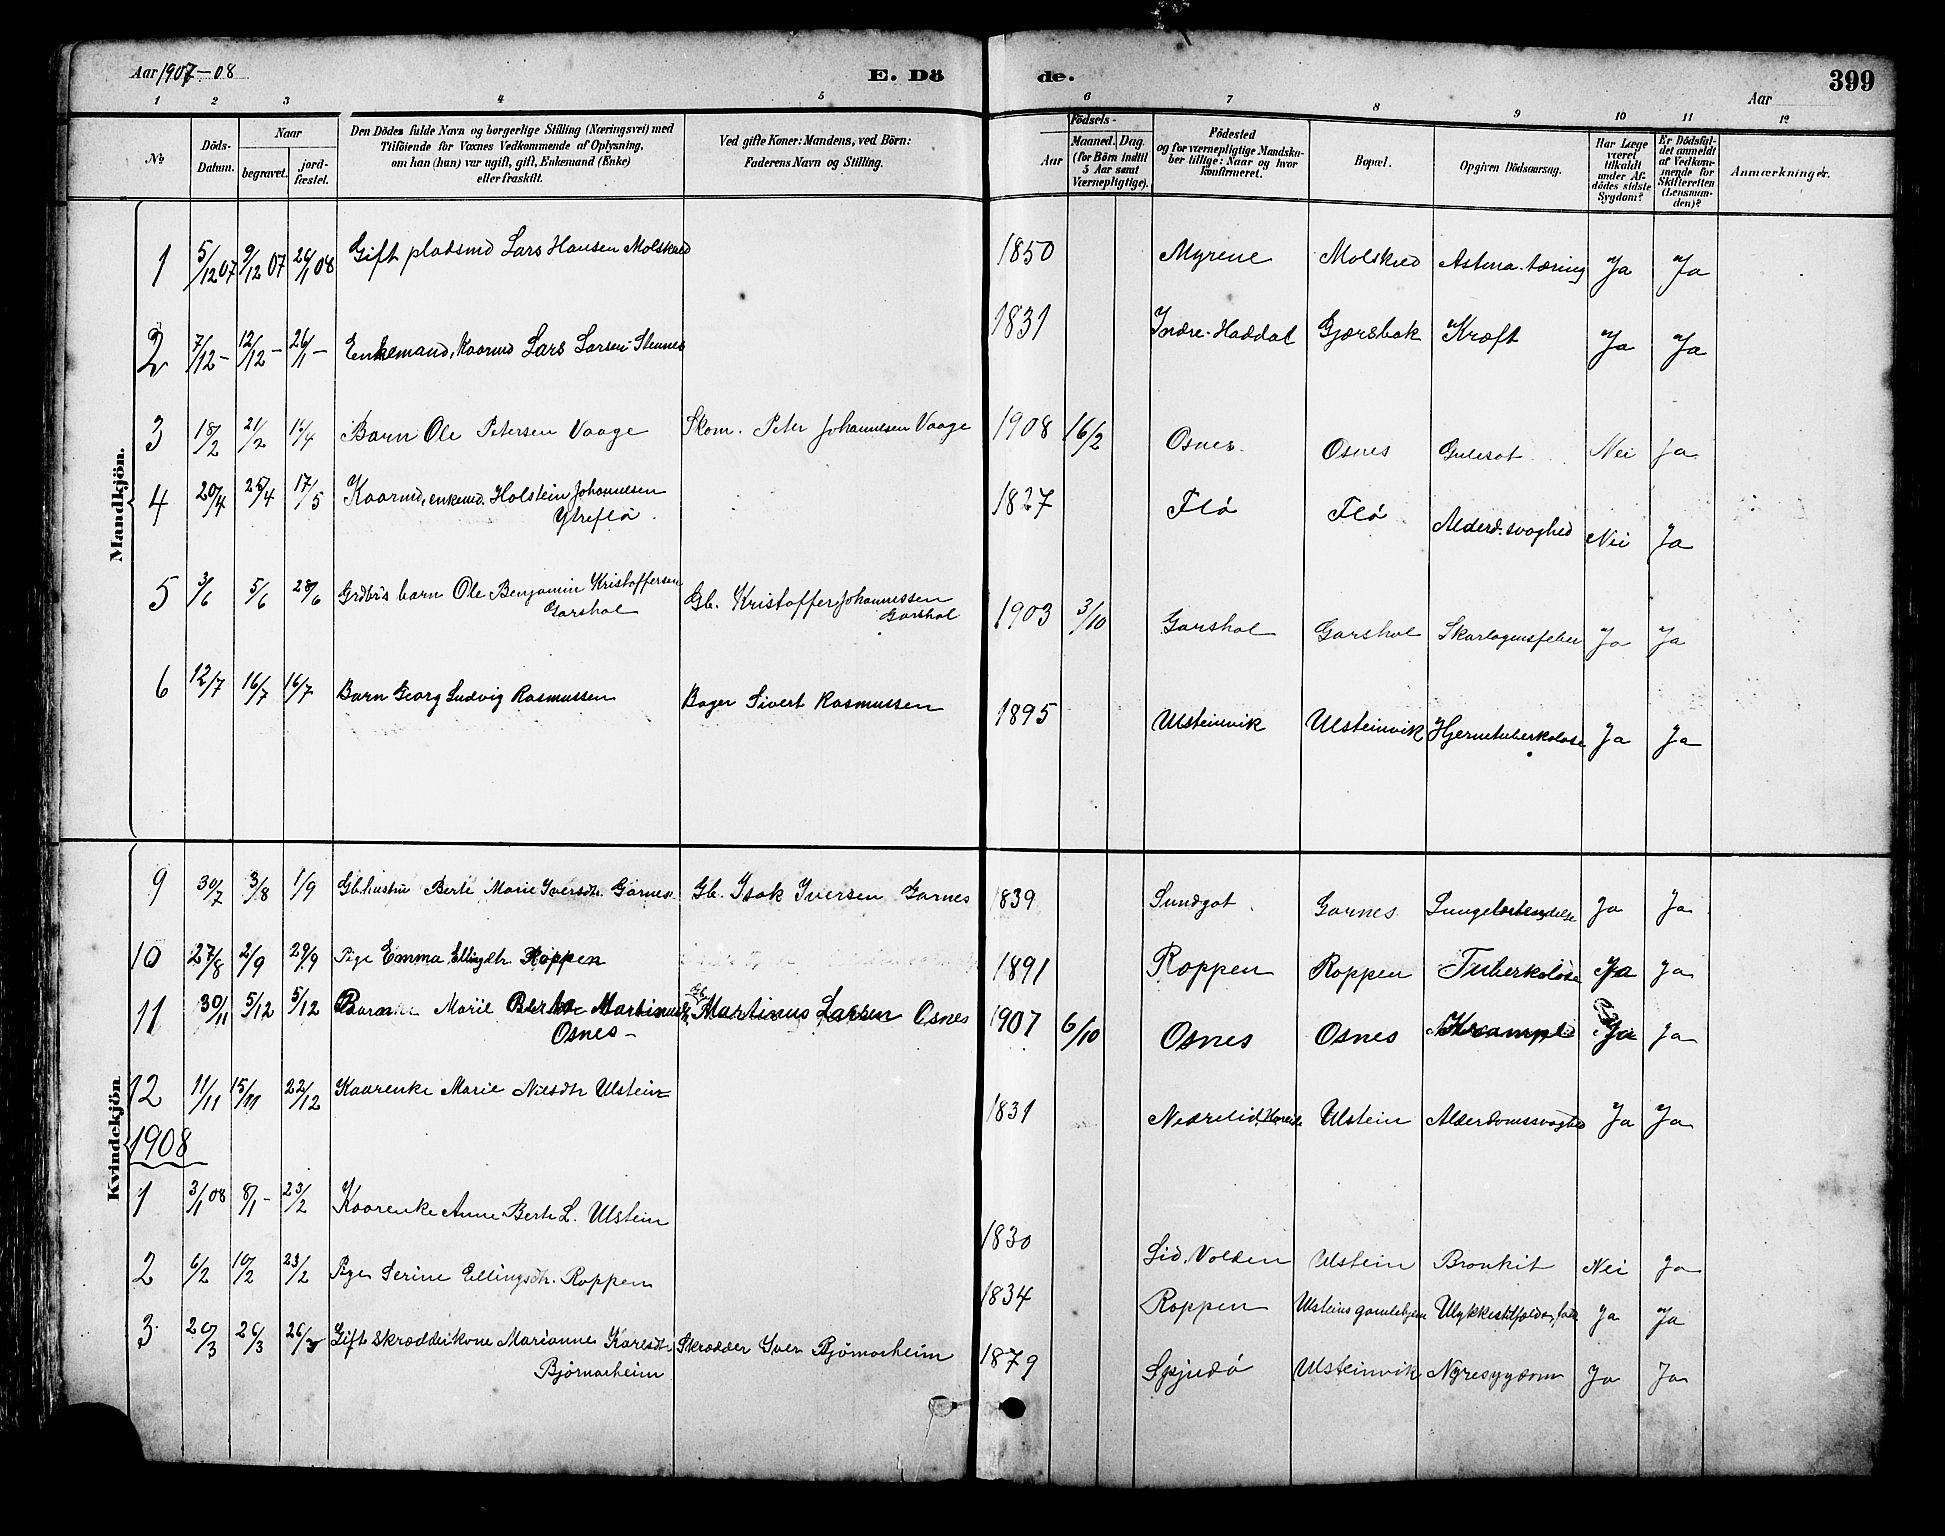 Aar 1907-08 E. Dö de. Aar 399
1 2 3 4 5 6 7 8 9 10 11 12
No
Döds-Datum.
Naar
begravet.
jord-fæstet.
Den Dödes fulde Navn og borgerlige Stilling (Næringsvei) med
Tilföiende for Voxnes Vedkommende af Oplysning,
om han (hun) var ugift, gift, Enkemand (Enke)
eller fraskilt.
Ved gifte Koner: Mandens, ved Börn:
Faderens Navn og Stilling.
Födsels-
Aar
Maaned. Dag.
(for Börn indtil
5 Aar samt
Værnepligtige).
Födested
og for værnepligtige Mandskaber
tillige: Naar og hvor
konfirmeret.
Bopæl.
Opgiven Dödsaarsag.
Har Læge
været
tilkaldt
under Af-
dödes sidste
Sygdom?
Er Dödsfal-
det anmeldt
af Vedkom-
mende for
Skifteretten
(Lensman-
den)?
Anmærkninger.
Mandkjön.
1 5/12 07 9/12 07 26/1 08 Gift pladsmd Lars Hansen Molskred 1850 Myrene Molskred Astma-tæring Ja Ja
2 7/12 - 12/12 - 26/1 - Enkemand, Kaarmd Lars Larsen Stennes 1831 Indre-Haddal Gjærsbak Kræft Ja Ja
3 18/2 21/2 Barn Ole Petersen Vaage Skom. Peter Johannesen Vaage 1908 16/2 Osnes Osnes Gulesot Nei Ja
4 20/4 25/4 17/5 Kaarmd, enkemd. Holstein Johannesen
Ytreflø 1827 Flø Flø Alderd. svaghed Nei Ja
5 3/6 5/6 28/6 Grdbrs barn Ole Benjamin Kristoffersen
Garshol Gb. Kristoffer Johannessen
Garshol 1903 3/10 Garshol Garshol Skarlagensfeber Ja Ja
6 12/7 16/7 16/7 Barn Georg Ludvig Rasmussen Bager Sivert Rasmussen 1895 Ulsteinvik Ulsteinvik Hjernetuberkolose Ja Ja
Kvindekjön
9 30/7 3/8 1/9 Gb.hustru Berte Marie Iversdtr. Garnes Gb. Isak Iversen Garnes 1839 Sundgot Garnes Lungebetendelse Ja Ja
10 27/8 2/9 29/9 Pige Emma Ellingdtr Roppen 1891 Roppen Roppen Tuberkolose Ja Ja
11 30/11 5/12 5/12 Barn Marie Berta Martinusd.
Osnes - Gb. Martinus Larsen Osnes 1907 6/10 Osnes Osnes Krampe Ja Ja
12 11/11 15/11 22/12 Kaarenke Marie Nilsdtr Ulstein 1831 Nedrelid, Ulstein Alderdomssvaghed Ja Ja
1908
1 3/1 08 8/1 - 23/2 Kaarenke Anne Berte L. Ulstein 1830 Lid, Volden Ulstein Bronkit Nei Ja
2 6/2 10/2 23/2 Pige Serine Ellingsdtr. Roppen 1834 Roppen Ulsteins gamlehjem Ulykkestilfælde, Ja Ja
3 20/3 26/3 26/3 Gift Skrædderkone Marianne Karlsdtr
Bjørnarheim Skrædder Iver Bjørnarheim 1879 Ulsteinvik Nyresygdom Ja Ja